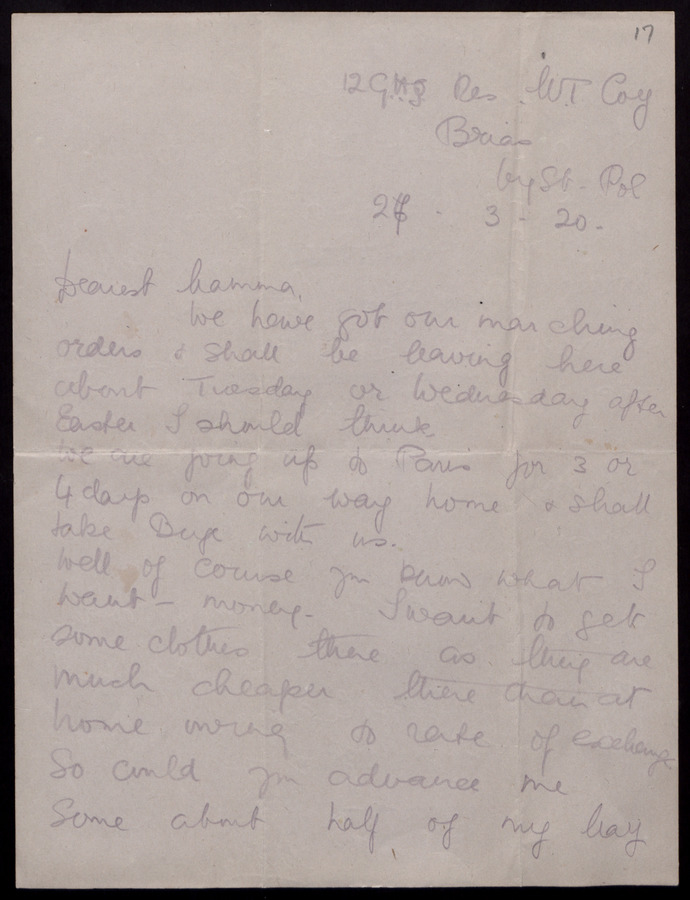 17
12 G.H.Q Res. M.T Coy
Brias
by St. Pol
27 . 3 - 20.
Dearest Mamma,
We have got our marching
orders & shall be leaving here
about Tuesday or Wednesday after
Easter I should think
We are going up to Paris for 3 or
4 days on our way home & shall
take with us.
Well of course you know what I
want - money. I want to get
some clothes there as they are
much cheaper there than at
home owing to rate of exchange
So could you advance me
Some about half of my pay